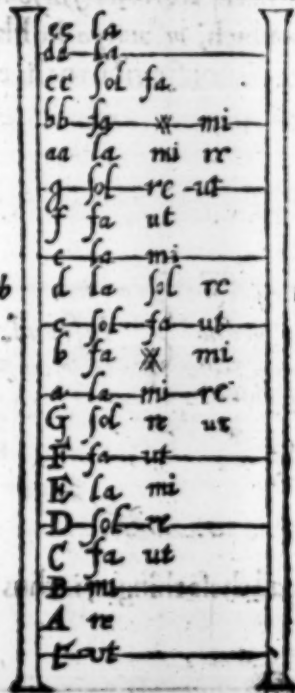 ee la
dd la
cc sol fa
bb fa ※ mi
aa la mi re
g sol re ut
f fa ut
e la mi
d la sol re
c sol fa ut
b fa ※ mi
a la mi re
G sol re ut
F fa ut
E la mi
D sol re
C fa ut
B mi
A re
Γ ut